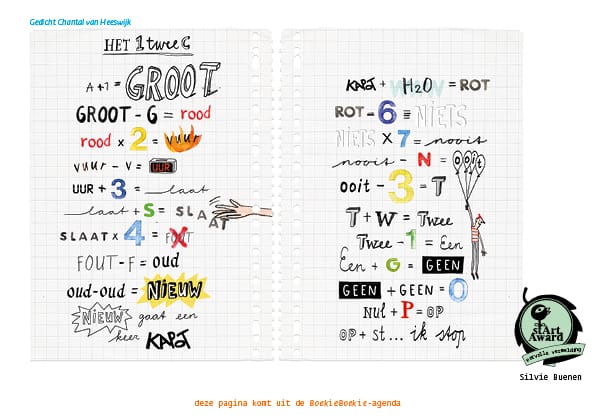 Gedicht Chantal van Heeswijk
HET 1 twee G
A+1 = GROOT
GROOT - G = rood
rood x 2 = vuur
vuur - v = UUR
UUR + 3 = laat
laat + S = SLAAT
SLAAT x 4 = FOUT
FOUT - F = oud
oud-oud = NIEUW
NIEUW gaat een
keer KAPOT
KAPOT + H2O = ROT
ROT - 6 = NIETS
NIETS x 7 = nooit
nooit - N = ooit
ooit - 3 = T
T + W = Twee
Twee - 1 = Een
Een + G = GEEN
GEEN + GEEN = 0
Nul + P = OP
OP + st... ik stop
stArt
Award
eervolle vermelding
Silvie Buenen
deze pagina komt uit de BoekieBoekie-agenda